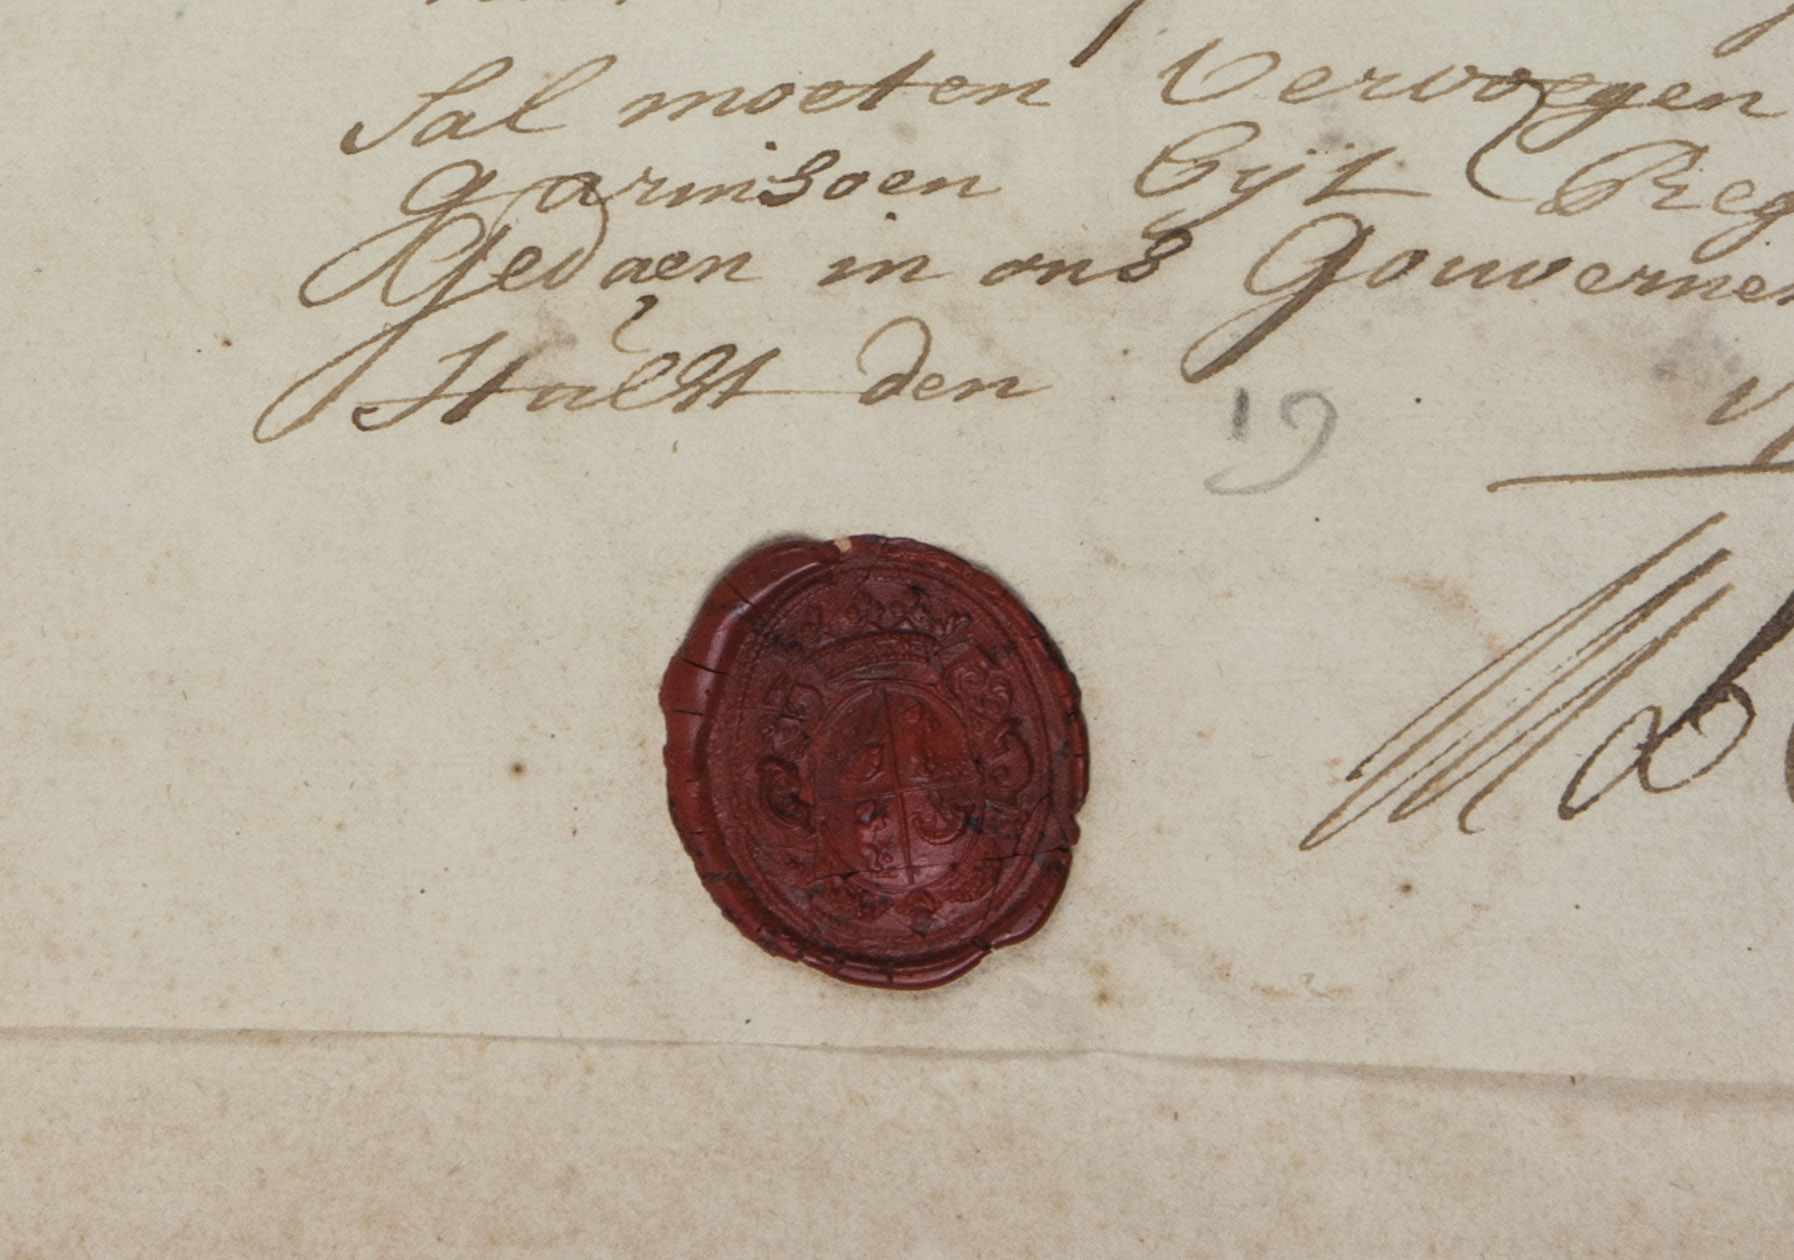 Sal moeten vervoegen
garnisoen bÿt Reg
Gedaen in ons Gouverne
Hulst den
19